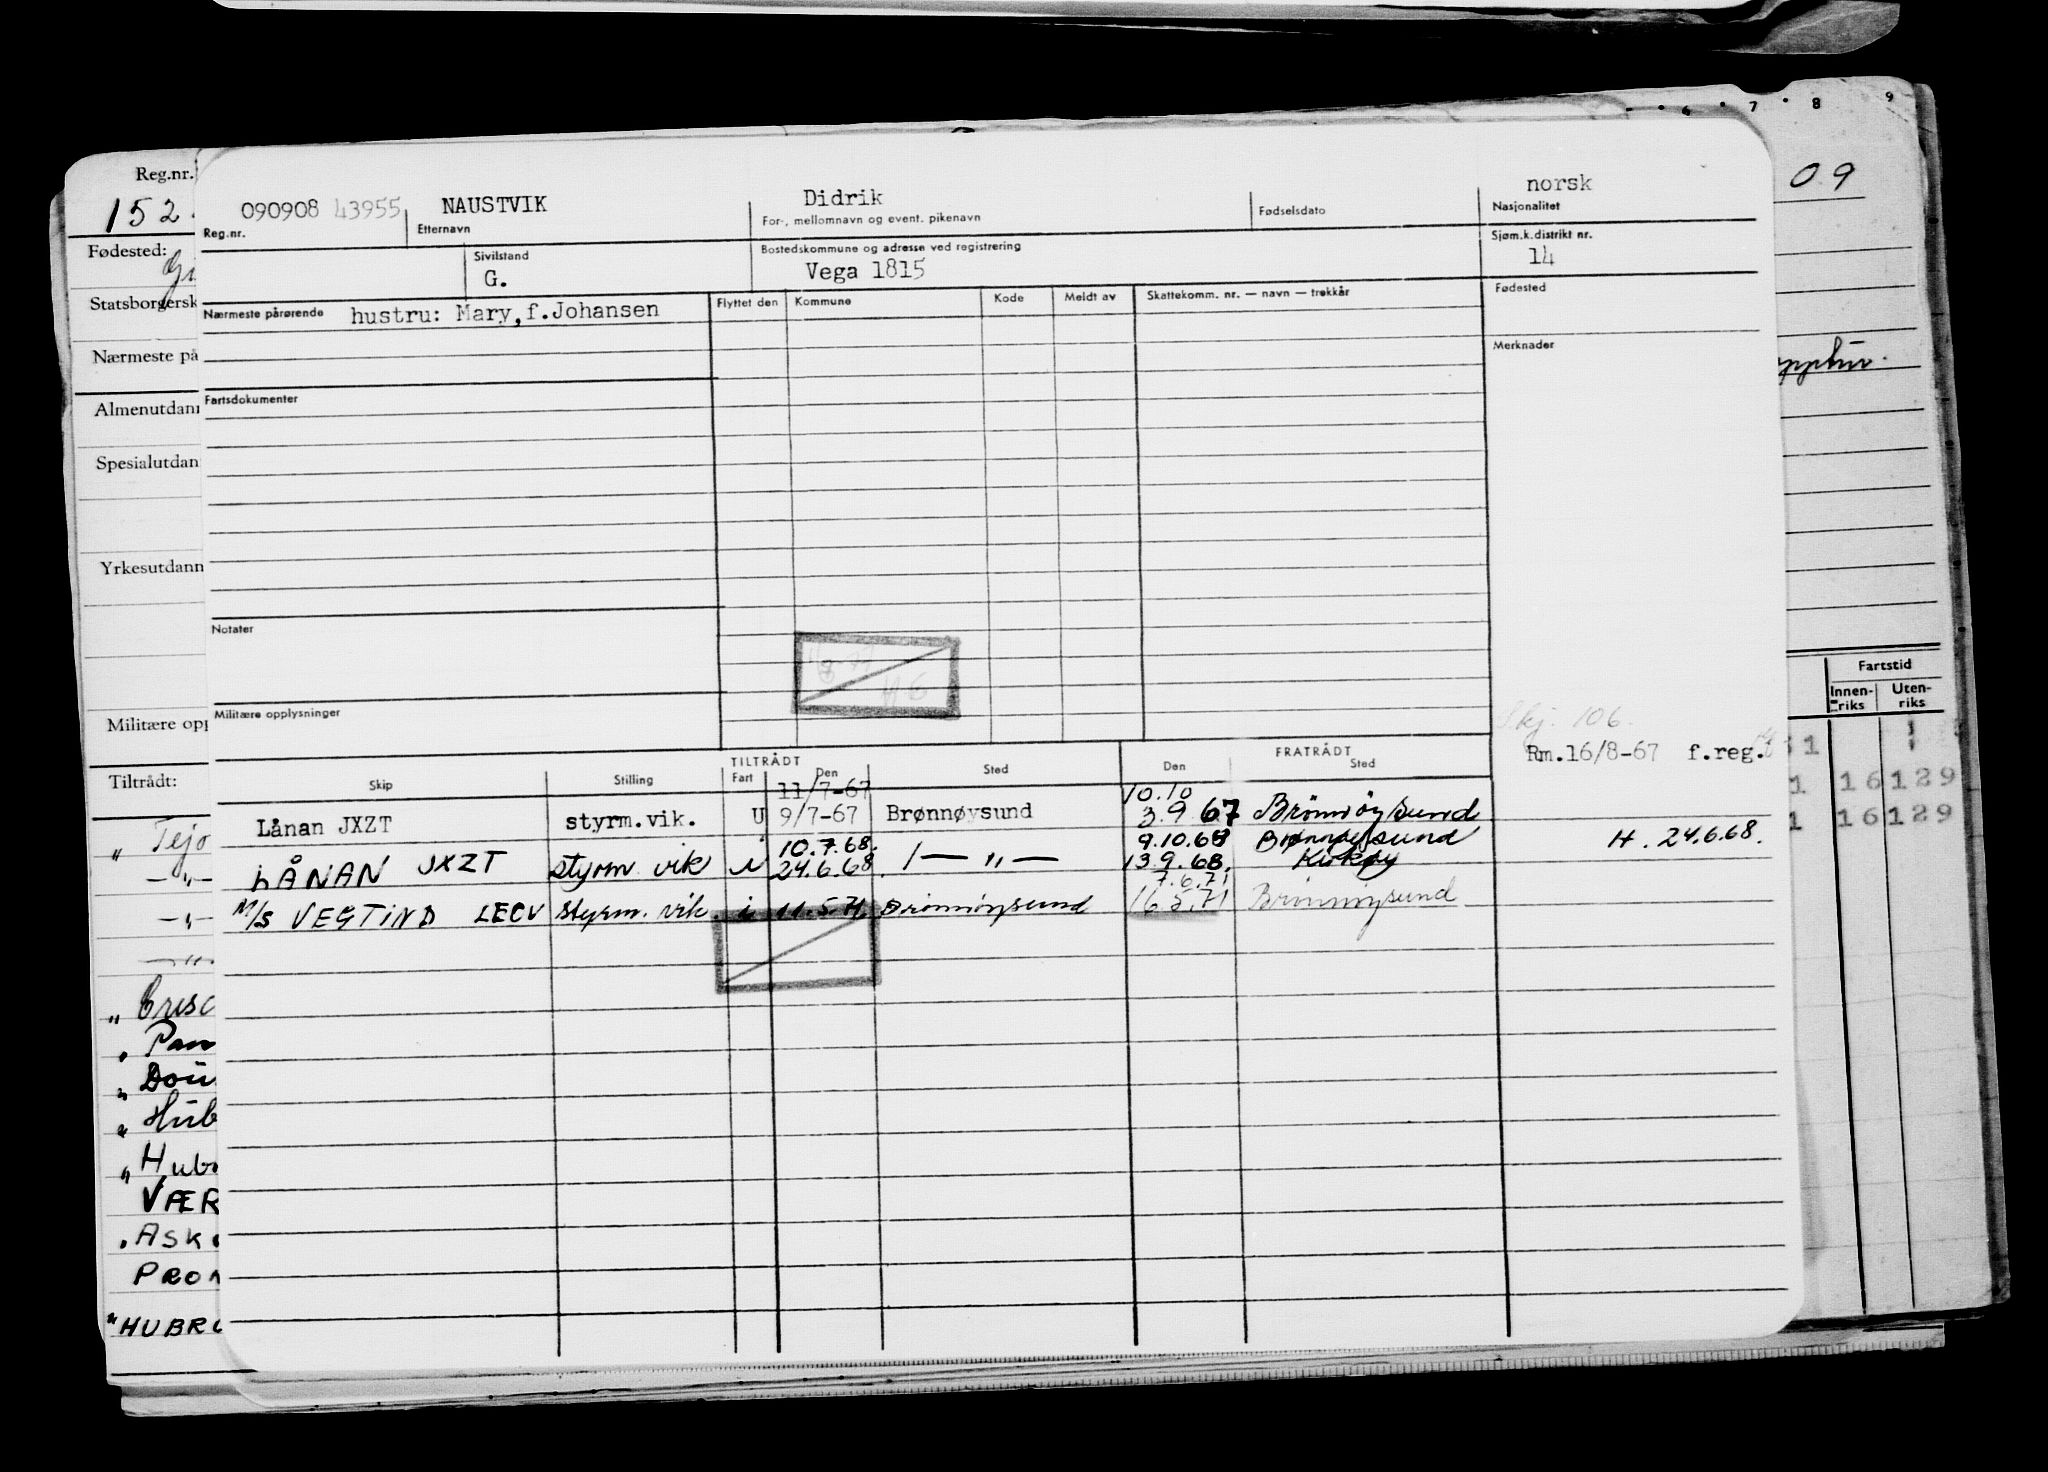 6 7 8 9
Reg.nr.
152
090908 43955
Reg.nr.
NAUSTVIK
Etternavn
Didrik
For-, mellomnavn og event. pikenavn
Fødselsdato
norsk
Nasjonalitet
09
Fødested:
Sivilstand
G.
Bostedskommune og adresse ved registrering
Vega 1815
Sjøm.k.distrikt nr.
14
Statsborgersk
Nærmeste pårørende hustru: Mary, f.Johansen
Flyttet den Kommune Kode Meldt av Skattekomm. nr. — navn — trekkår
Fødested
Nærmeste på
Merknader
Almenutdann
Fartsdokumenter
Spesialutdan
Yrkesutdann
Notater
Militære opp
Militære opplysninger
Fartstid
Innen-riks Uten-riks
Skj. 106.
Rm.16/8-67 f.reg.
Tiltrådt:
TILTRÅDT FRATRÅDT
Skip Stilling Fart Den Sted Den Sted
11/7-67 10.10
Lånan JXZT styrm.vik. U 9/7-67 Brønnøysund 3.9.67 Brønnøysund
10.7.68. 9.10.68 Brønnøysund
LÅNAN JXZT styrm vik i 24.6.68. —"— 13.9.68. Kirkøy
H. 24.6.68.
7.6.71
M/S VEGTIND LECV styrm. vik. i 11.5.71. Brønnøysund 16.5.71 Brønnøysund
1 16 129
1 16 129
" Tejo
—"—
—"—
—"—
" Crisc
" Pan
" Dou
" Hub
" Hub
VÆR
" Ask
PRON
" HUBRO